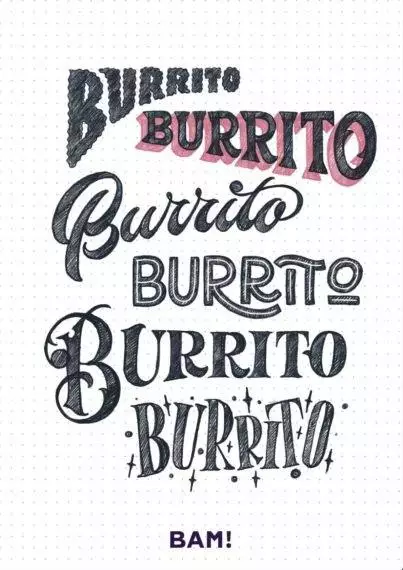 BURRITO
BURRITO
Burrito
BURRITO
BURRITO
BURRiTO
BAM!